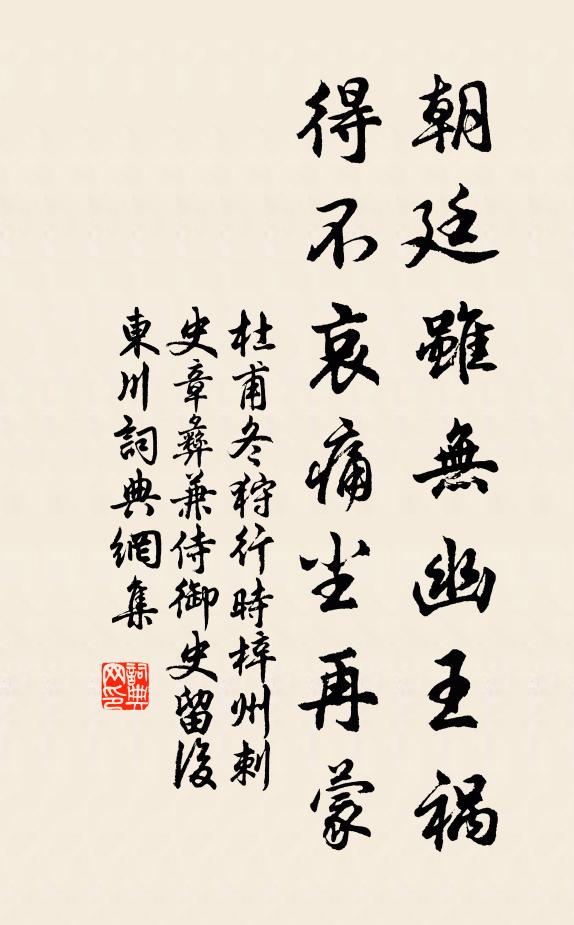 朝廷雖無幽王禍
得不哀痛尘再蒙
杜甫冬狩行時梓州刺
史章彝兼侍御史留後
東川詞典網集
詞典网印